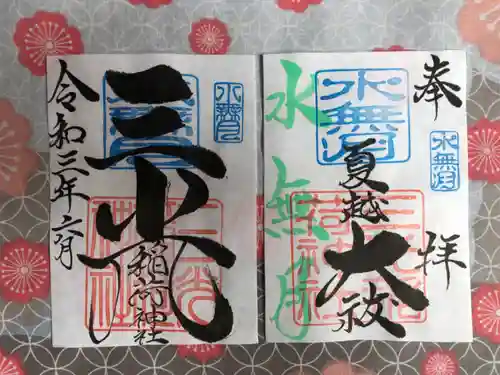 奉拝
水無月
水無月
夏越
大祓
水無月
三光
稲荷神社
水無月
令和三年六月